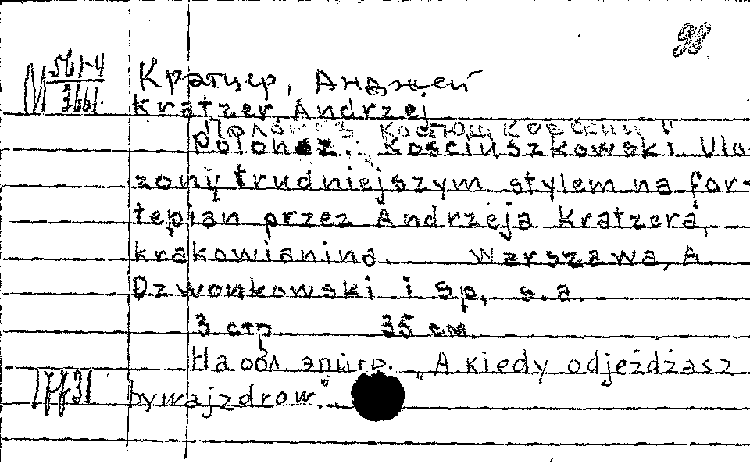 98
М 561-4
3661
Кратцер, Анджей
Kratzer, Andrzej
Полонез Костюшковский
Polonez. Kościuszkowski Ulo-
żony trudniejszym stylem na for-
tepian przez Andrzeja Kratzera,
krakowianina. Warszawa, A.
Dzwonkowski i Sp, s.a.
3 стр 35 см
На обл эпигр. "A kiedy odjeżdżasz
bywaj zdrow."